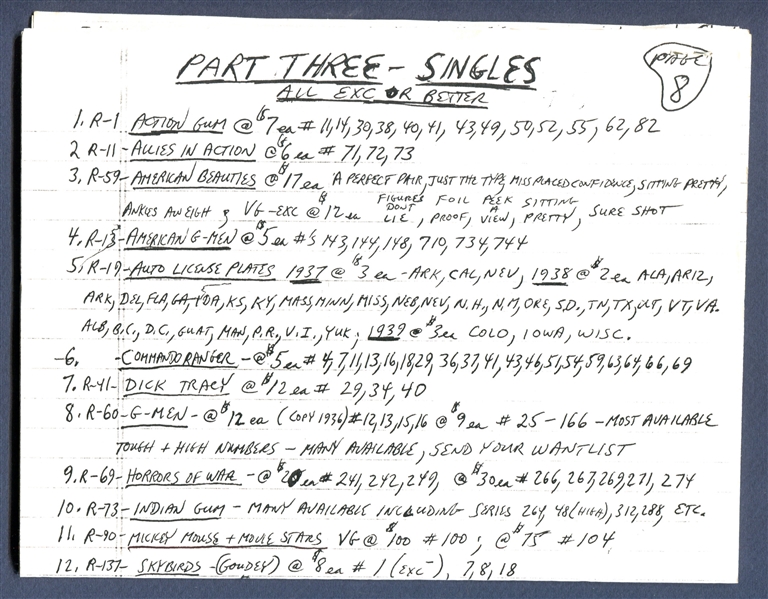 PART THREE - SINGLES
PAGE 8
ALL EXC OR BETTER
1. R-1 ACTION GUM @ $7 ea # 11, 14, 30, 38, 40, 41, 43, 49, 50, 52, 55, 62, 82
2 R-11 - ALLIES IN ACTION @ $6 ea # 71, 72, 73
3. R-59 - AMERICAN BEAUTIES @ $17 ea A PERFECT PAIR, JUST THE TYPE, MISS PLACED CONFIDENCE, SITTING PRETTY,
ANKLES AWEIGH; VG-EXC @ $12 ea FIGURES DON'T LIE, FOIL PROOF, PEEK A VIEW, SITTING PRETTY, SURE SHOT
4. R-13 - AMERICAN G-MEN @ $5 ea #'s 143, 144, 148, 710, 734, 744
5. R-19 - AUTO LICENSE PLATES 1937 @ $3 ea - ARK, CAL, NEV, 1938 @ $2 ea ALA, ARIZ,
ARK, DEL, FLA, GA, IDA, KS, KY, MASS, MINN, MISS, NEB, NEV, N.H., N.M, ORE, S.D., TN, TX, UT, VT, VA.
ALB, B.C., D.C., GUAT, MAN, P.R., V.I., YUK; 1939 @ $3 ea COLO, IOWA, WISC.
-6. - COMMANDO RANGER - @ $5 ea # 4, 7, 11, 13, 16, 18, 29, 36, 37, 41, 43, 46, 51, 54, 59, 63, 64, 66, 69
7. R-41 - DICK TRACY @ $12 ea # 29, 34, 40
8. R-60 - G-MEN - @ $12 ea (COPY 1936) # 12, 13, 15, 16 @ $9 ea # 25-166 - MOST AVAILABLE
TOUGH + HIGH NUMBERS - MANY AVAILABLE, SEND YOUR WANTLIST
9. R-69 - HORRORS OF WAR - @ $20 ea # 241, 242, 249, @ $30 ea # 266, 267, 269, 271, 274
10. R-73 - INDIAN GUM - MANY AVAILABLE INCLUDING SERIES 264, 48 (HIGH), 312, 288, ETC.
11. R-90 - MICKEY MOUSE + MOVIE STARS VG @ $100 # 100; @ $75 # 104
12. R-137 - SKYBIRDS - (GOUDEY) @ $8 ea # 1 (EXC-), 7, 8, 18